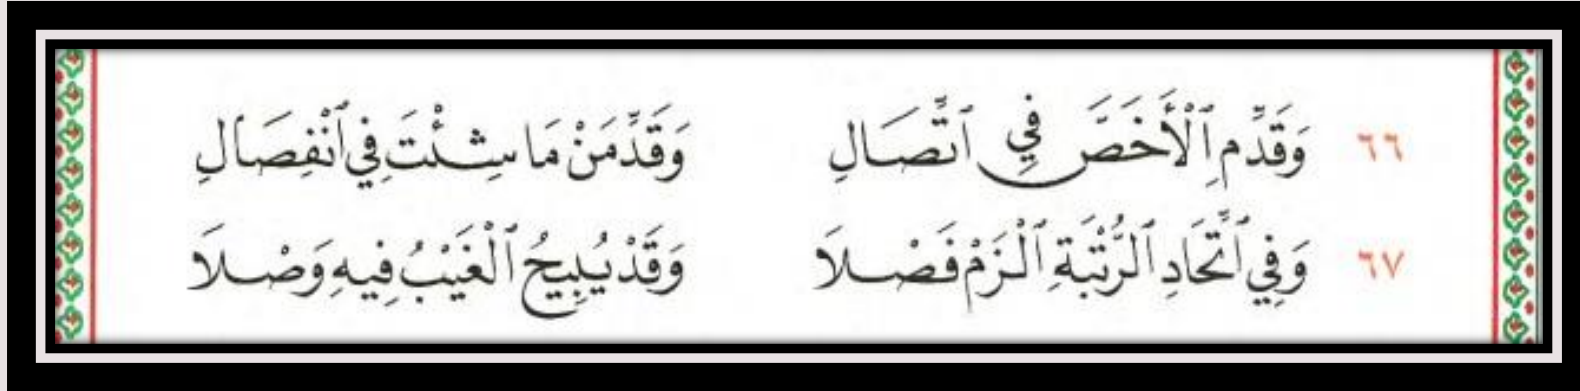 ٦٦ وَقَدِّمِ ٱلْأَخَصَّ فِي ٱتِّصَالِ وَقَدِّمَنْ مَا شِئْتَ فِي ٱنْفِصَالِ
٦٧ وَفِي ٱتِّحَادِ ٱلرُّتْبَةِ ٱلْزَمْ فَصْلَا وَقَدْ يُبِيحُ ٱلْغَيْبُ فِيهِ وَصْلَا